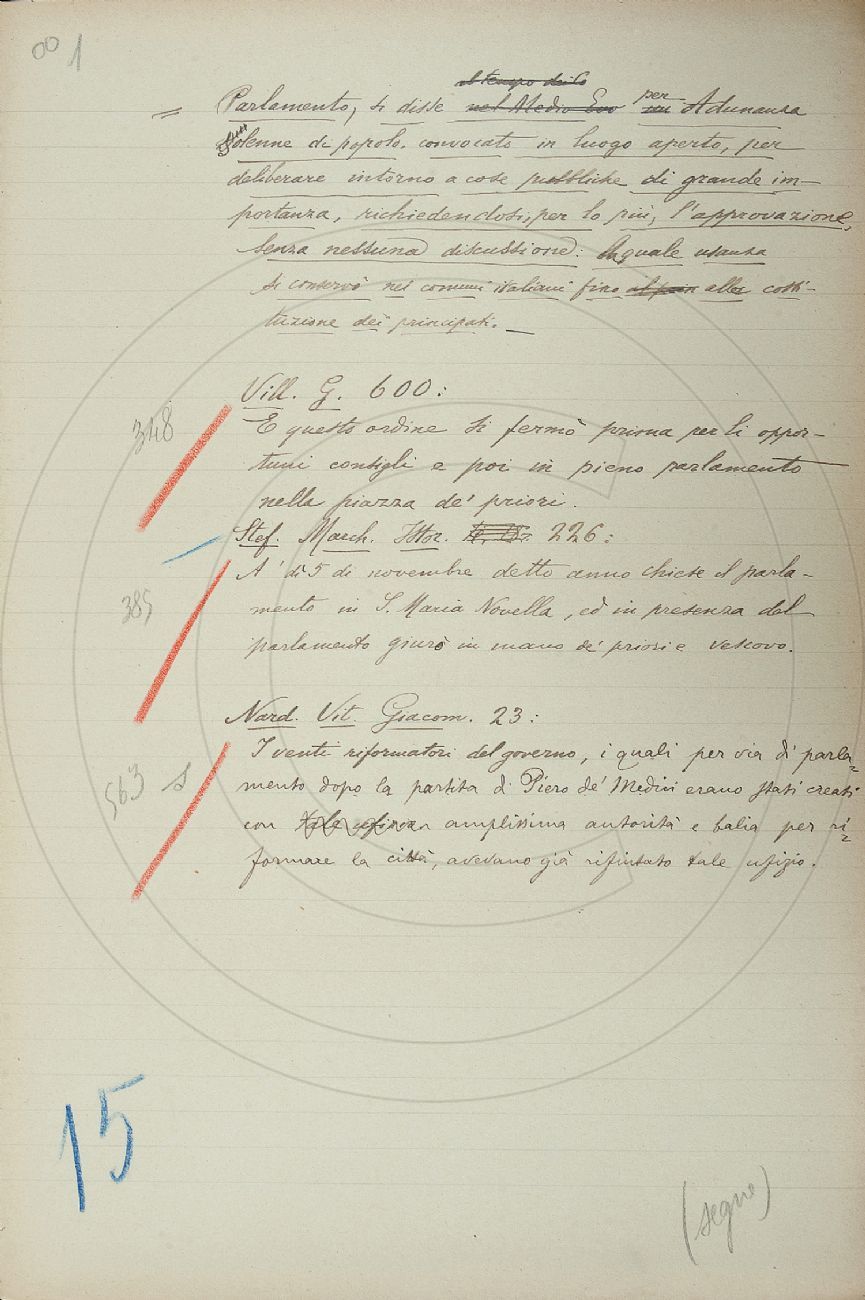 001
al tempo dei Co
= Parlamento, si disse nel Medio Evo per un Adunanza
solenne di popolo, convocato in luogo aperto, per
deliberare intorno a cose pubbliche di grande im-
portanza, richiedendosi, per lo più, l'approvazione,
senza nessuna discussione: la quale usanza
si conservò nei comuni italiani fino alla costi-
tuzione dei principati. —
Vill. G. 600:
348 E questo ordine si fermò prima per li oppor-
tuni consigli e poi in pieno parlamento
nella piazza de' priori.
Stef. March. Istor. 226:
385 A' dì 5 di novembre detto anno chiese il parla-
mento in S. Maria Novella, ed in presenza del
parlamento giurò in mano de' priori e vescovo.
Nard. Vit. Giacom. 23:
563 s I venti riformatori del governo, i quali per via di parla=
mento dopo la partita di Piero de' Medici erano stati creati
con amplissima autorità e balìa per ri=
formare la città, avevano già rifiutato tale ufizio.
15
(segue)